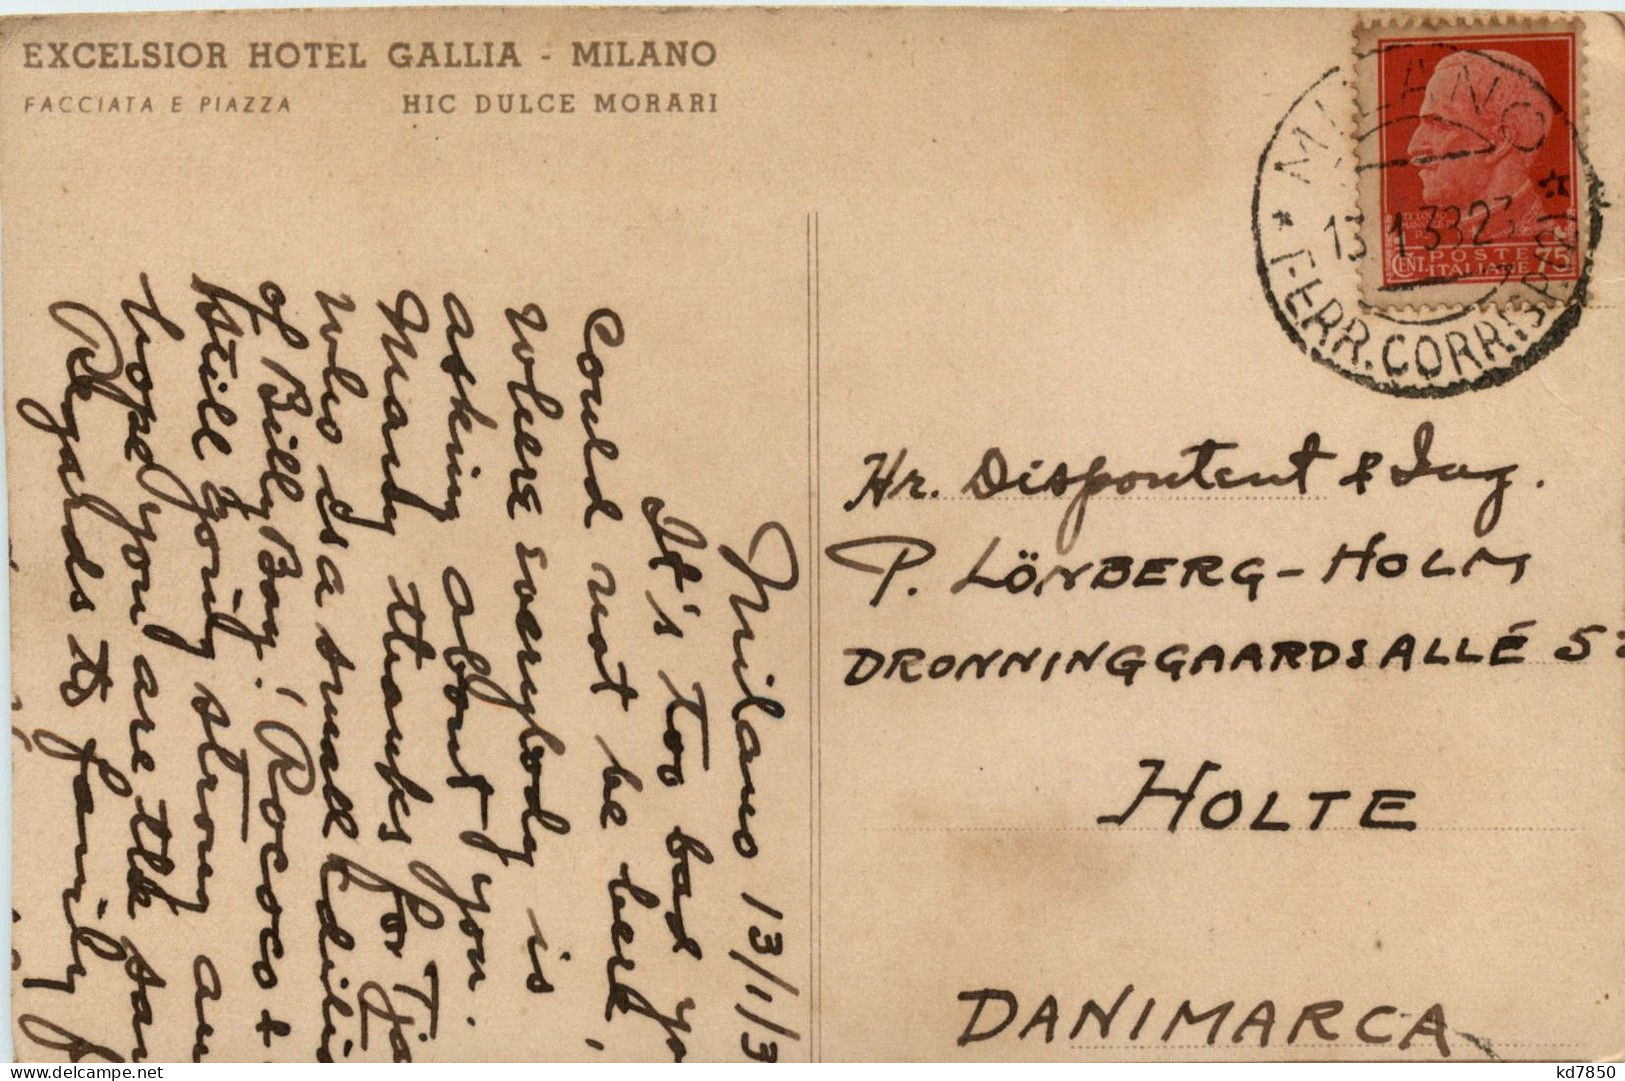 EXCELSIOR HOTEL GALLIA - MILANO
FACCIATA E PIAZZA HIC DULCE MORARI
Milano 13/1/3
It's too bad yo
could not be here,
where everybody is
asking about you.
Many thanks for Tja
who is a small editio
of Billy Boy. Rococo &
still going strong an
hope you are the sam
Regards to family
MILANO
13 1 33 23
FERR. CORRISP.
POSTE
ITALIANE
CENT. 75
Hr. Disponent & Ing.
P. LÖNBERG-HOLM
DRONNINGGAARDSALLÉ 52
HOLTE
DANIMARCA
www.delcampe.net
kd7850